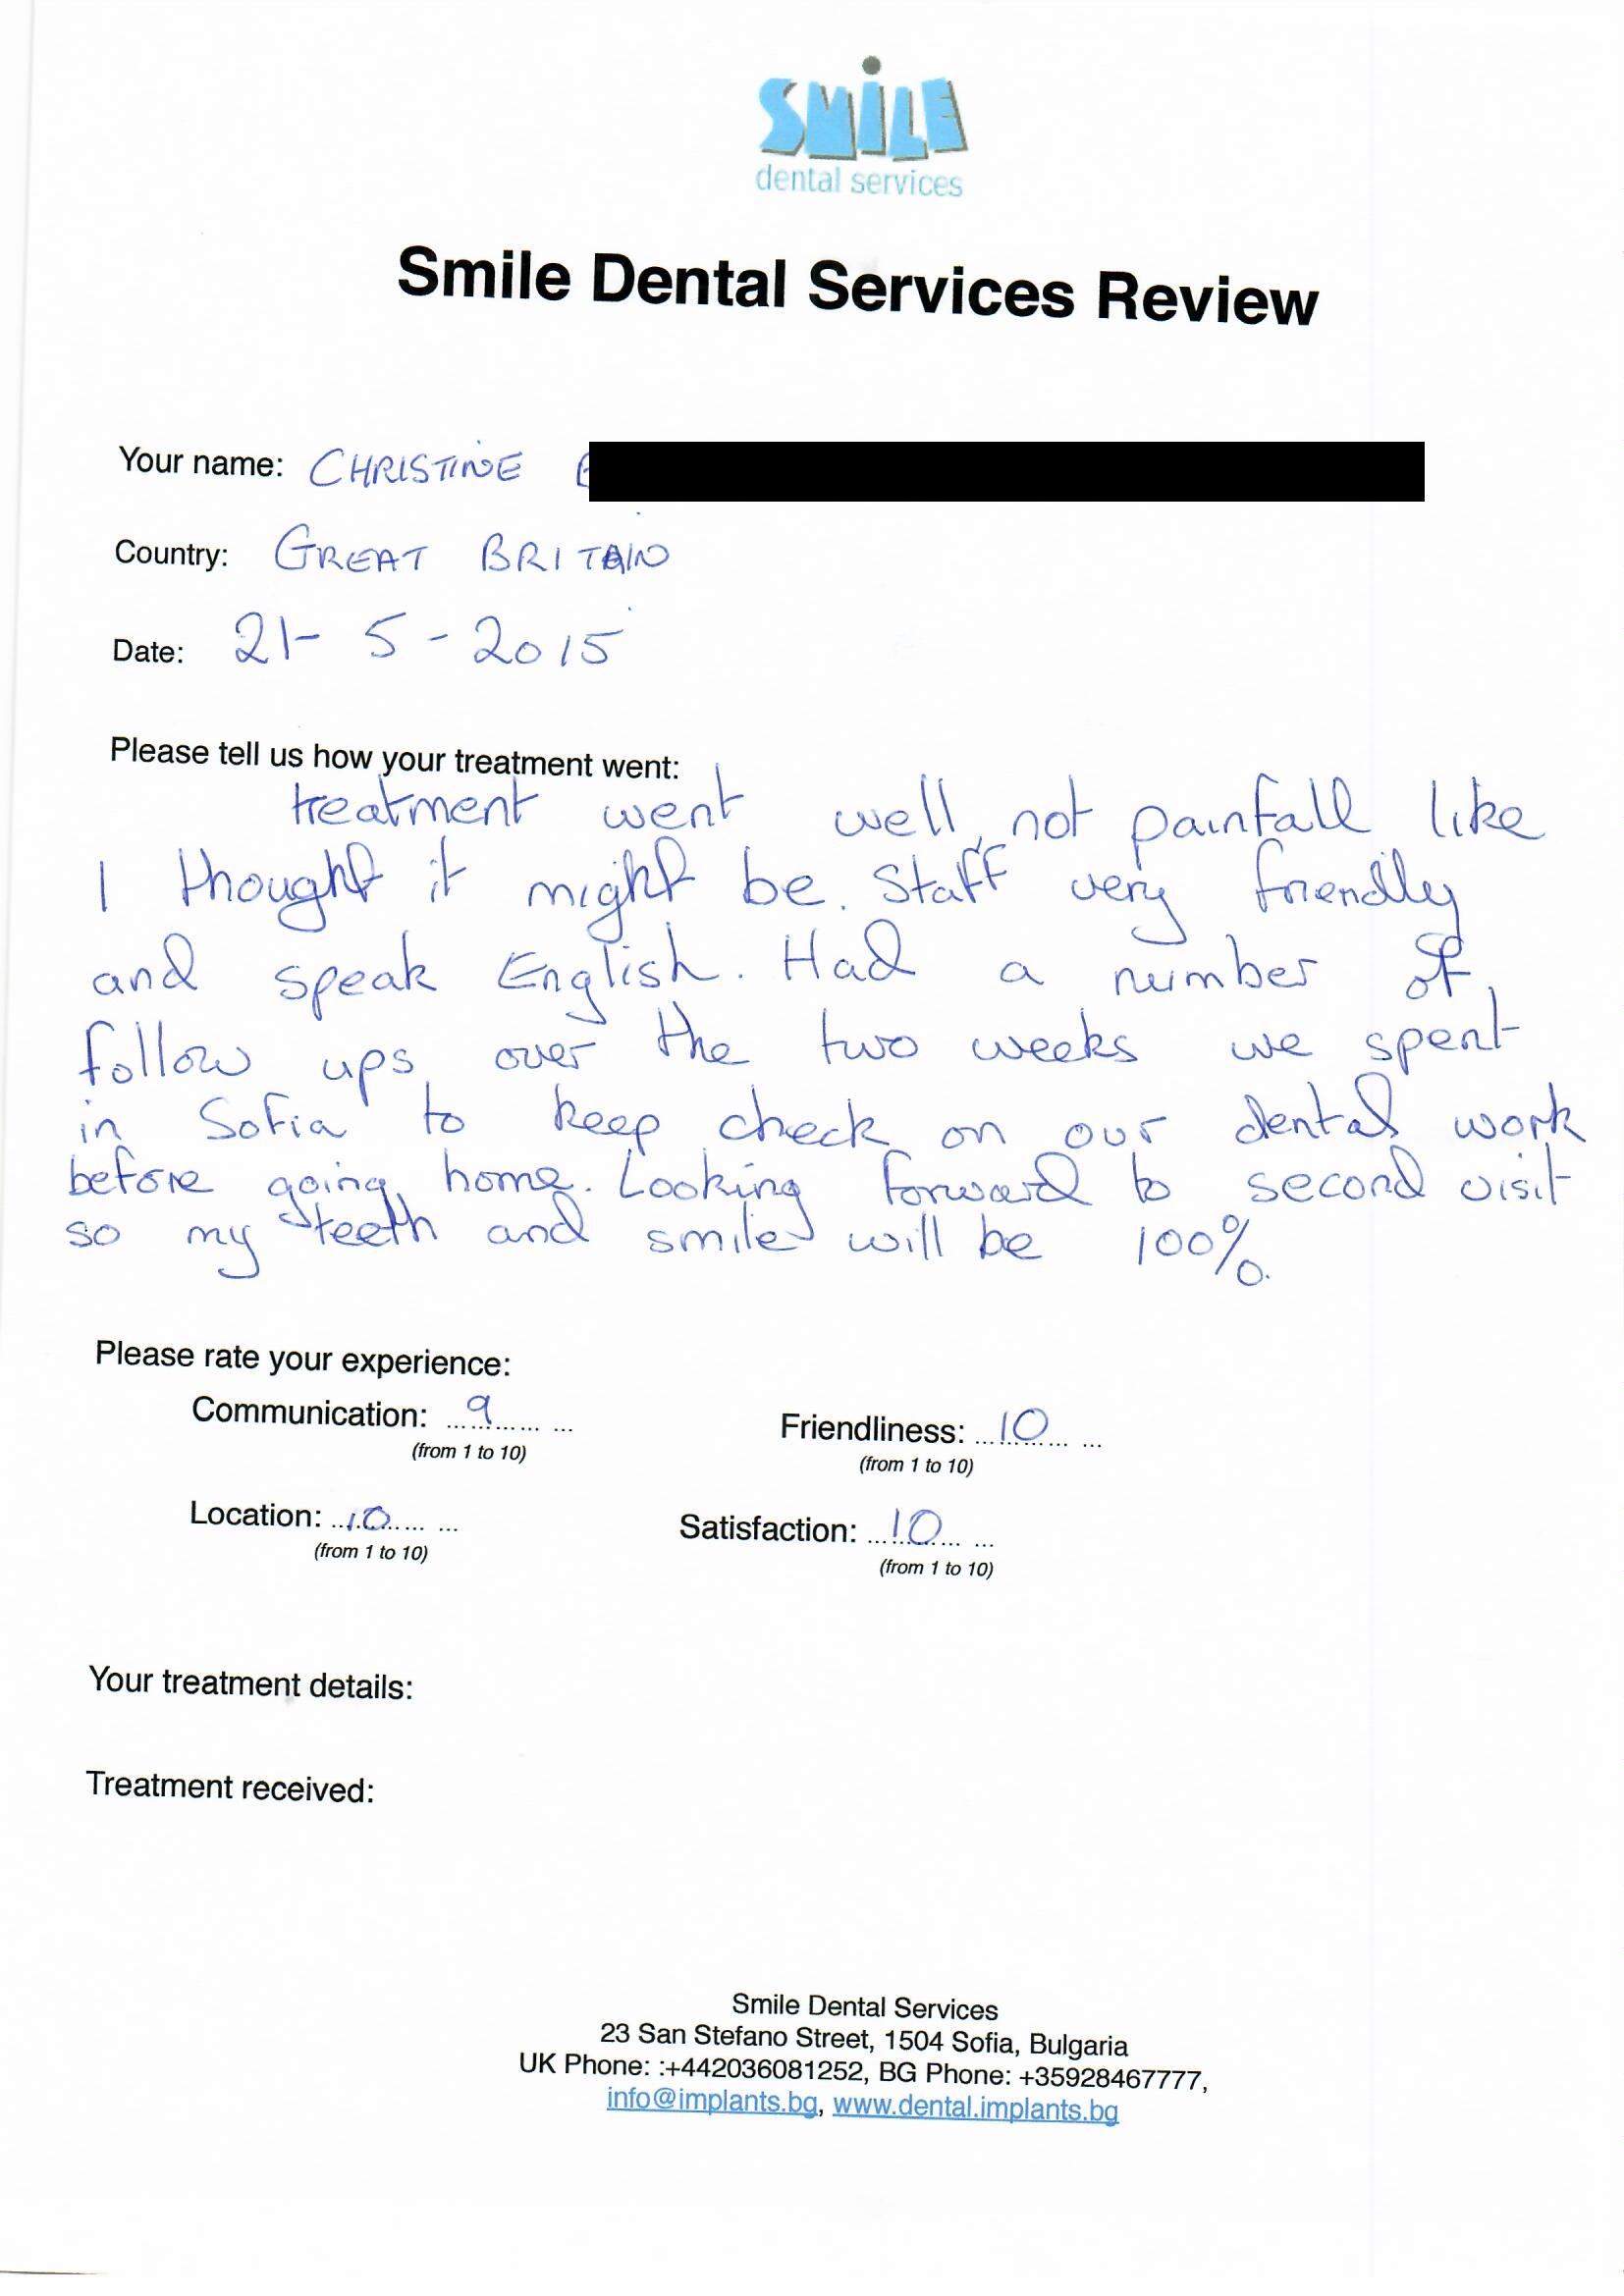 SMiLE
dental services
Smile Dental Services Review
Your name: CHRISTINE
Country: GREAT BRITAIN
Date: 21- 5 - 2015
Please tell us how your treatment went:
treatment went well, not painfall like
I thought it might be. Staff very friendly
and speak English. Had a number of
follow ups over the two weeks we spent
in Sofia to keep check on our dental work
before going home. Looking forward to second visit
so my teeth and smile will be 100%.
Please rate your experience:
Communication: ...9... ... Friendliness: ...10... ...
(from 1 to 10) (from 1 to 10)
Location: ...10... ... Satisfaction: ...10... ...
(from 1 to 10) (from 1 to 10)
Your treatment details:
Treatment received:
Smile Dental Services
23 San Stefano Street, 1504 Sofia, Bulgaria
UK Phone: :+442036081252, BG Phone: +35928467777,
info@implants.bg, www.dental.implants.bg